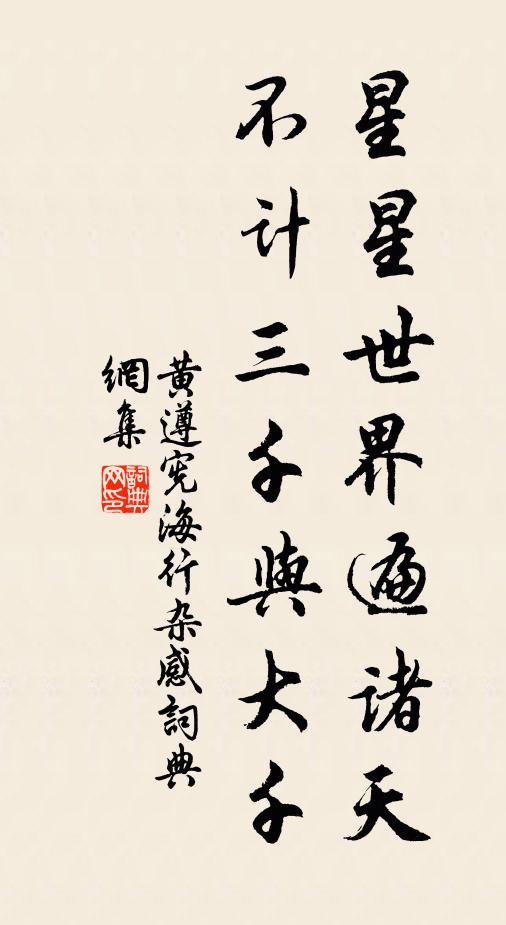 星星世界遍諸天
不计三千與大千
黄遵宪海行杂感詞典
網集
詞典
网印